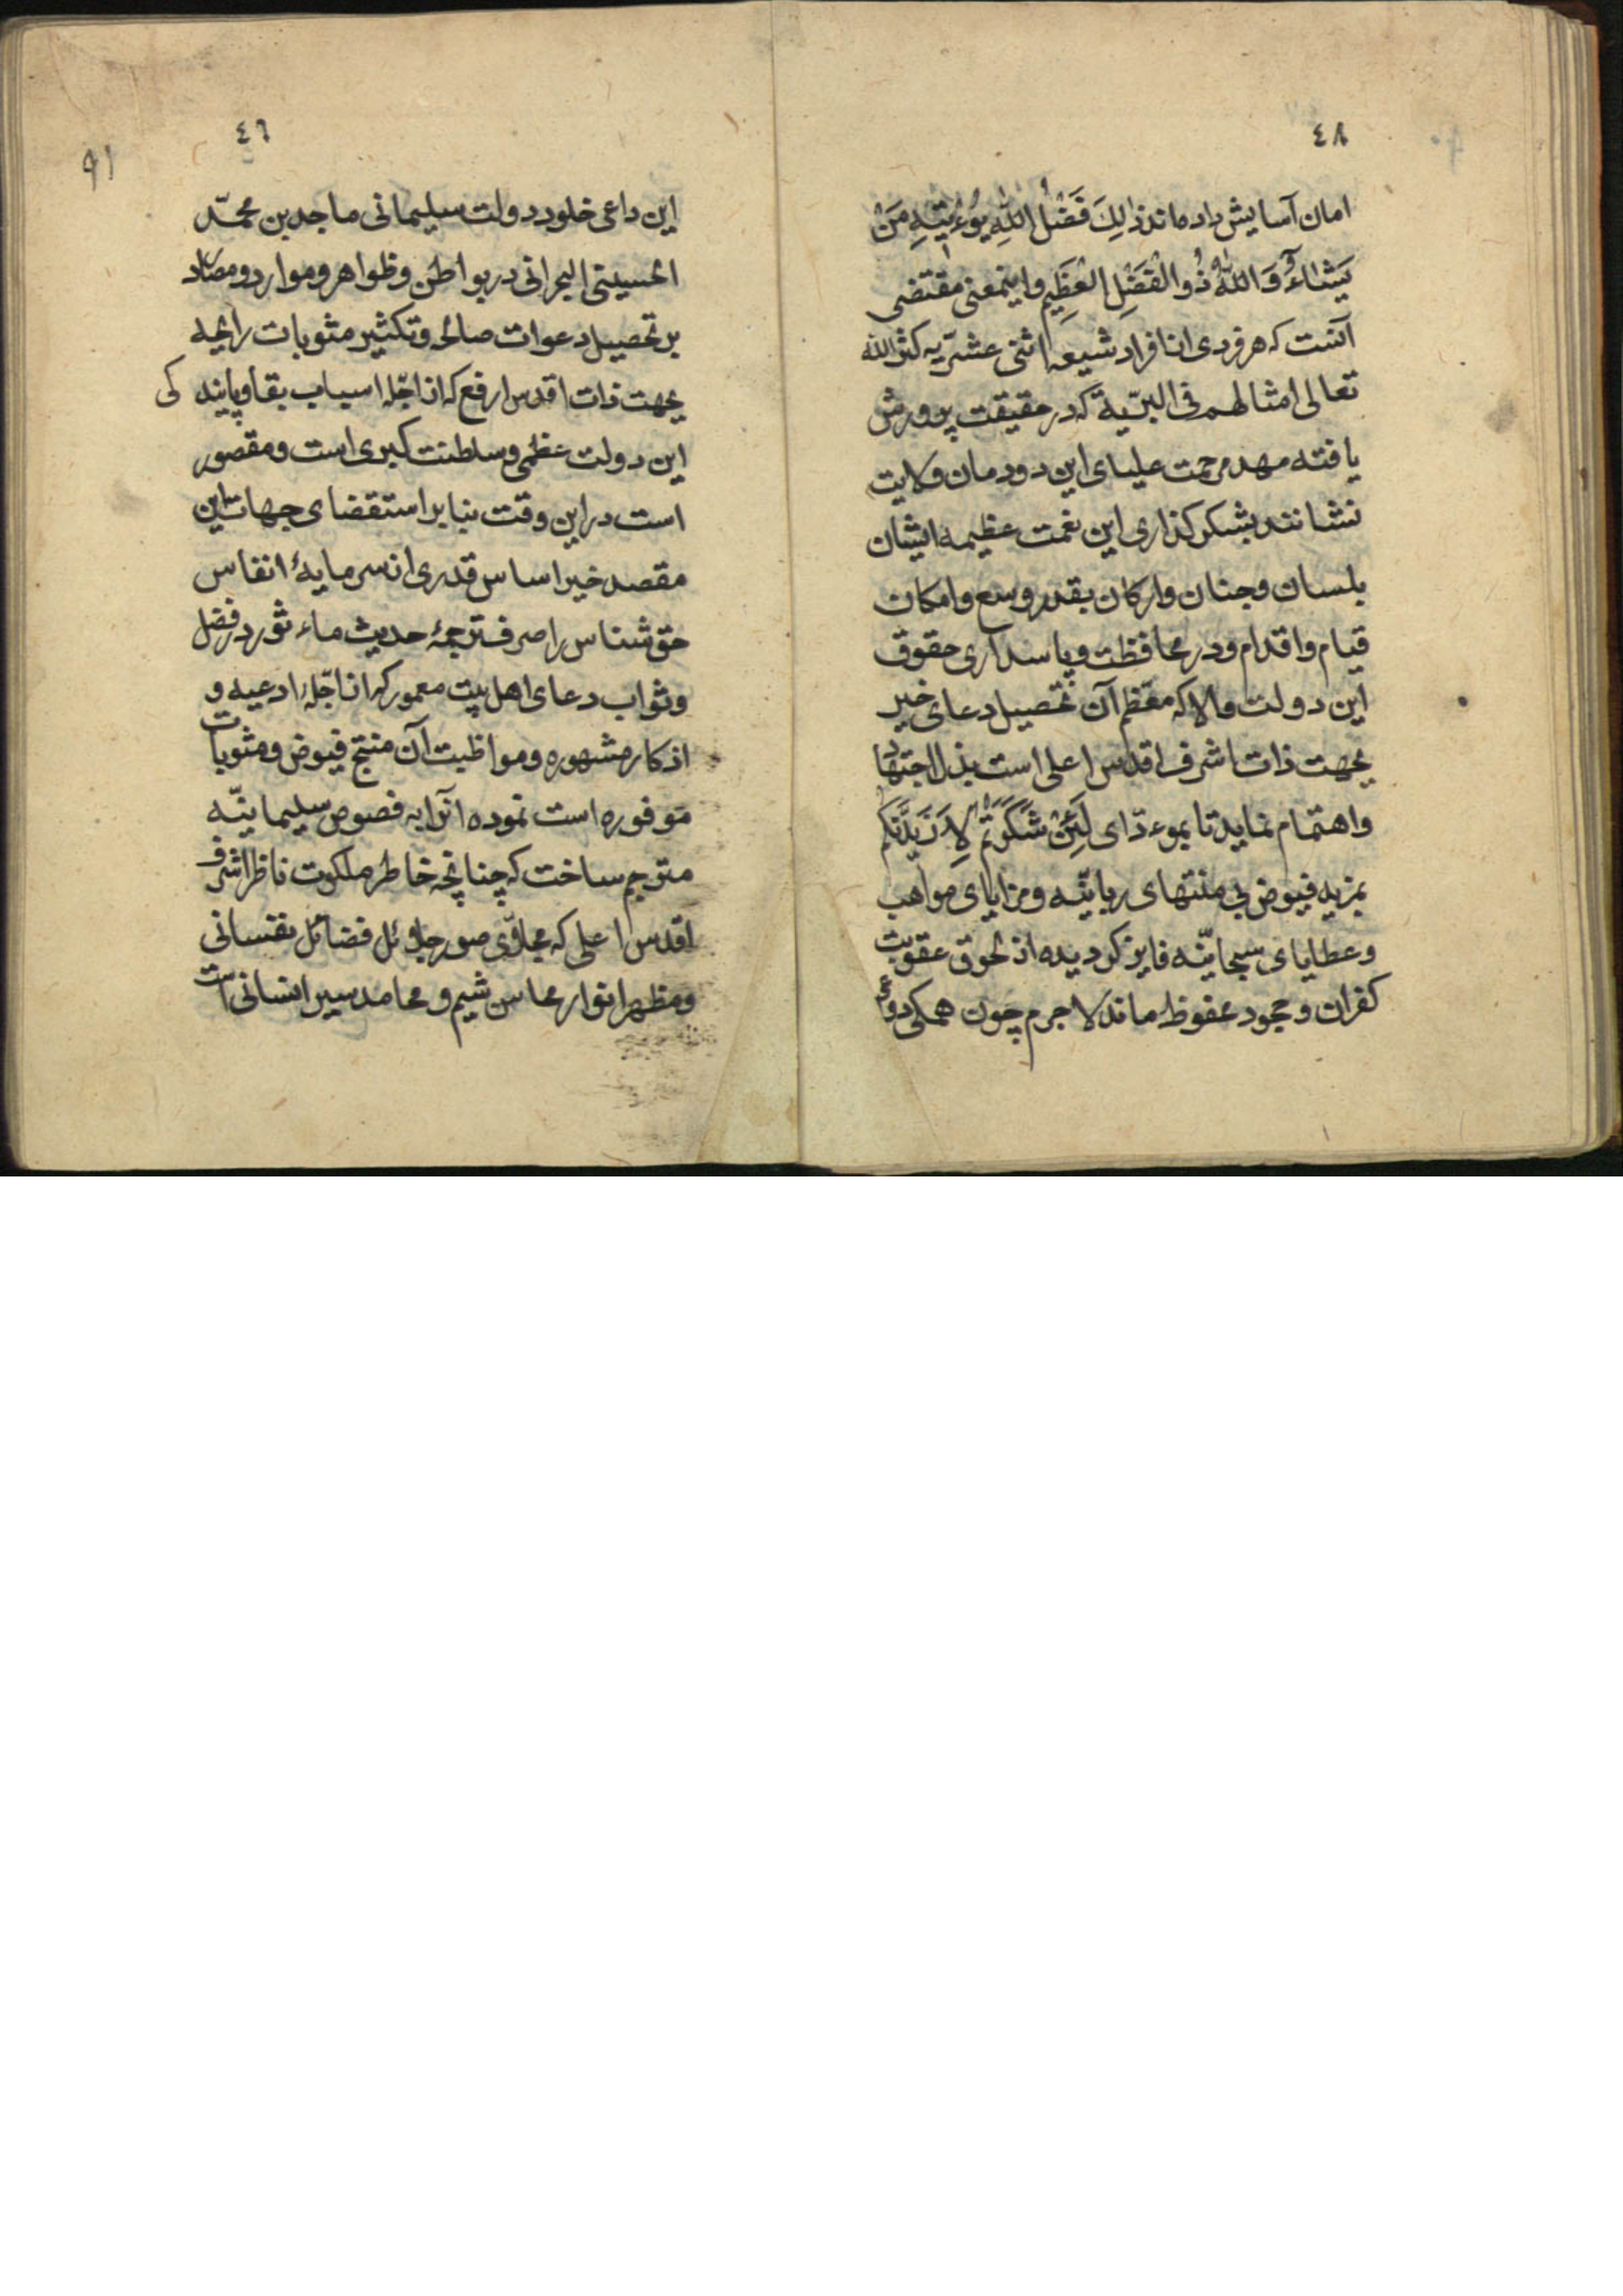 ٤٨
امان آسایش داد ماند ذالِكَ فَضْلُ اللّٰهِ یُوءْتیٖهِ مَنْ
یَشٰآءُ وَ اللّٰهُ ذُو الْفَضْلِ الْعَظیِمِ و اینمعنی مقتضی
آنست که هر فردی از افراد شیعه اثنی عشرّیه کثر الله
تعالی امثالهم فی البرّیة که در حقیقت پرورش
یافته مهد مرحمت علیای این دودمان ولایت
نشانند بشکر کذاری این نعمت عظیمه ایشان
بلسان و جنان و ارکان بقدر وسع و امکان
قیام و اقدام و در محافظت و پاسداری حقوق
این دولت والا که معظم آن تحصیل دعای خیر
بجهت ذات اشرف اقدس اعلی است بذل اجتهاد
و اهتمام نماید تا بموءدّای لَئِنْ شَكَرْتُمْ لَاَزیٖدَنَّكُم
بمزید فیوض بی منتهای ربانیّه و مزایای مواهب
و عطایای سبحانیّه فایز کردیده از لحوق عقوبت
کفران و جحود محفوظ ماند لاجرم چون همکی دواعی
٤٩
٩١
این داعی خلود دولت سلیمانی ماجد بن محمّد
الحسینی البحرانی در بواطن و ظواهر و موارد و مصادر
بر تحصیل دعوات صالحه و تکثیر مثوبات رابحه
بجهت ذات اقدس ارفع که از اجّله اسباب بقا و پایند کی
این دولت عظمی و سلطنت کبری است و مقصور
است در این وقت بنابر استقضای جهات این
مقصد خیر اساس قدری از سرمایۀ انفاس
حق شناس را صرف ترجمۀ حدیث ماءثور در فضل
و ثواب دعای اهل بیت معمور که از اجّله ادعیه و
اذکار مشهوره و مواظبت آن منتج فیوض و مثوبات
موفوره است نموده آنرا به فصوص سلیمانیّه
مترجم ساخت که چنانچه خاطر ملکوت ناظر اشرف
اقدس اعلی که مجلاّی صور جلائل فضائل نفسانی
و مظهر انوار محاسن شیم و محامد سیر انسانی است